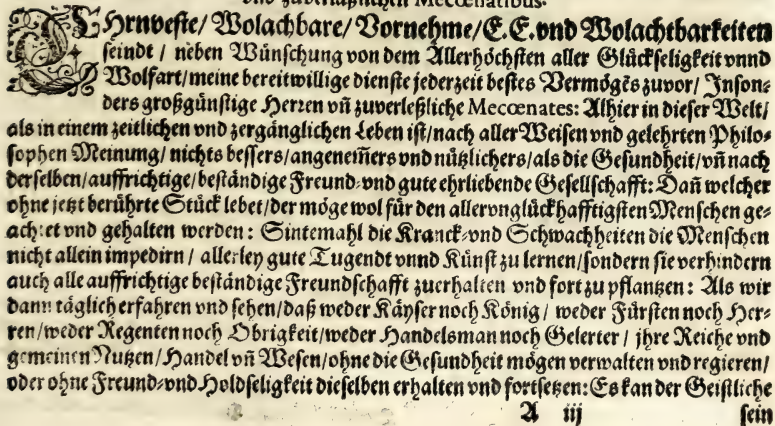 Mecœnatibus.
EHrnveste/ Wolachbare/ Vornehme/ E. E. vnd Wolachtbarkeiten
seindt/ neben Wünschung von dem Allerhöchsten aller Glückseligkeit vnnd
Wolfart/ meine bereitwillige dienste jederzeit bestes Vermögēs zuvor/ Inson⸗
ders großgünstige Herren vñ zuverleßliche Mecœnates: Alhier in dieser Welt/
als in einem zeitlichen vnd zergänglichen Leben ist/ nach aller Weisen vnd gelehrten Philo⸗
sophen Meinung/ nichts bessers/ angenem̄ers vnd nützlichers/ als die Gesundheit/ vñ nach
derselben/ auffrichtige/ beständige Freund⸗ vnd gute ehrliebende Gesellschafft: Dañ welcher
ohne jetzt berührte Stück lebet/ der möge wol für den allerunglückhafftigsten Menschen ge⸗
achtet vnd gehalten werden: Sintemahl die Kranck⸗ vnd Schwachheiten die Menschen
nicht allein impedirn/ allerley gute Tugendt vnnd Künst zu lernen/ sondern sie verhindern
auch alle auffrichtige beständige Freundschafft zuerhalten vnd fort zu pflantzen: Als wir
dann täglich erfahren vnd sehen/ daß weder Käyser noch König/ weder Fürsten noch Her⸗
ren/ weder Regenten noch Obrigkeit/ weder Handelsman noch Gelerter/ jhre Reiche vnd
gemeinen Nutzen/ Handel vñ Wesen/ ohne die Gesundheit mögen verwalten vnd regieren/
oder ohne Freund⸗ vnd Holdseligkeit dieselben erhalten vnd fortsetzen: Es kan der Geistliche
A iij sein